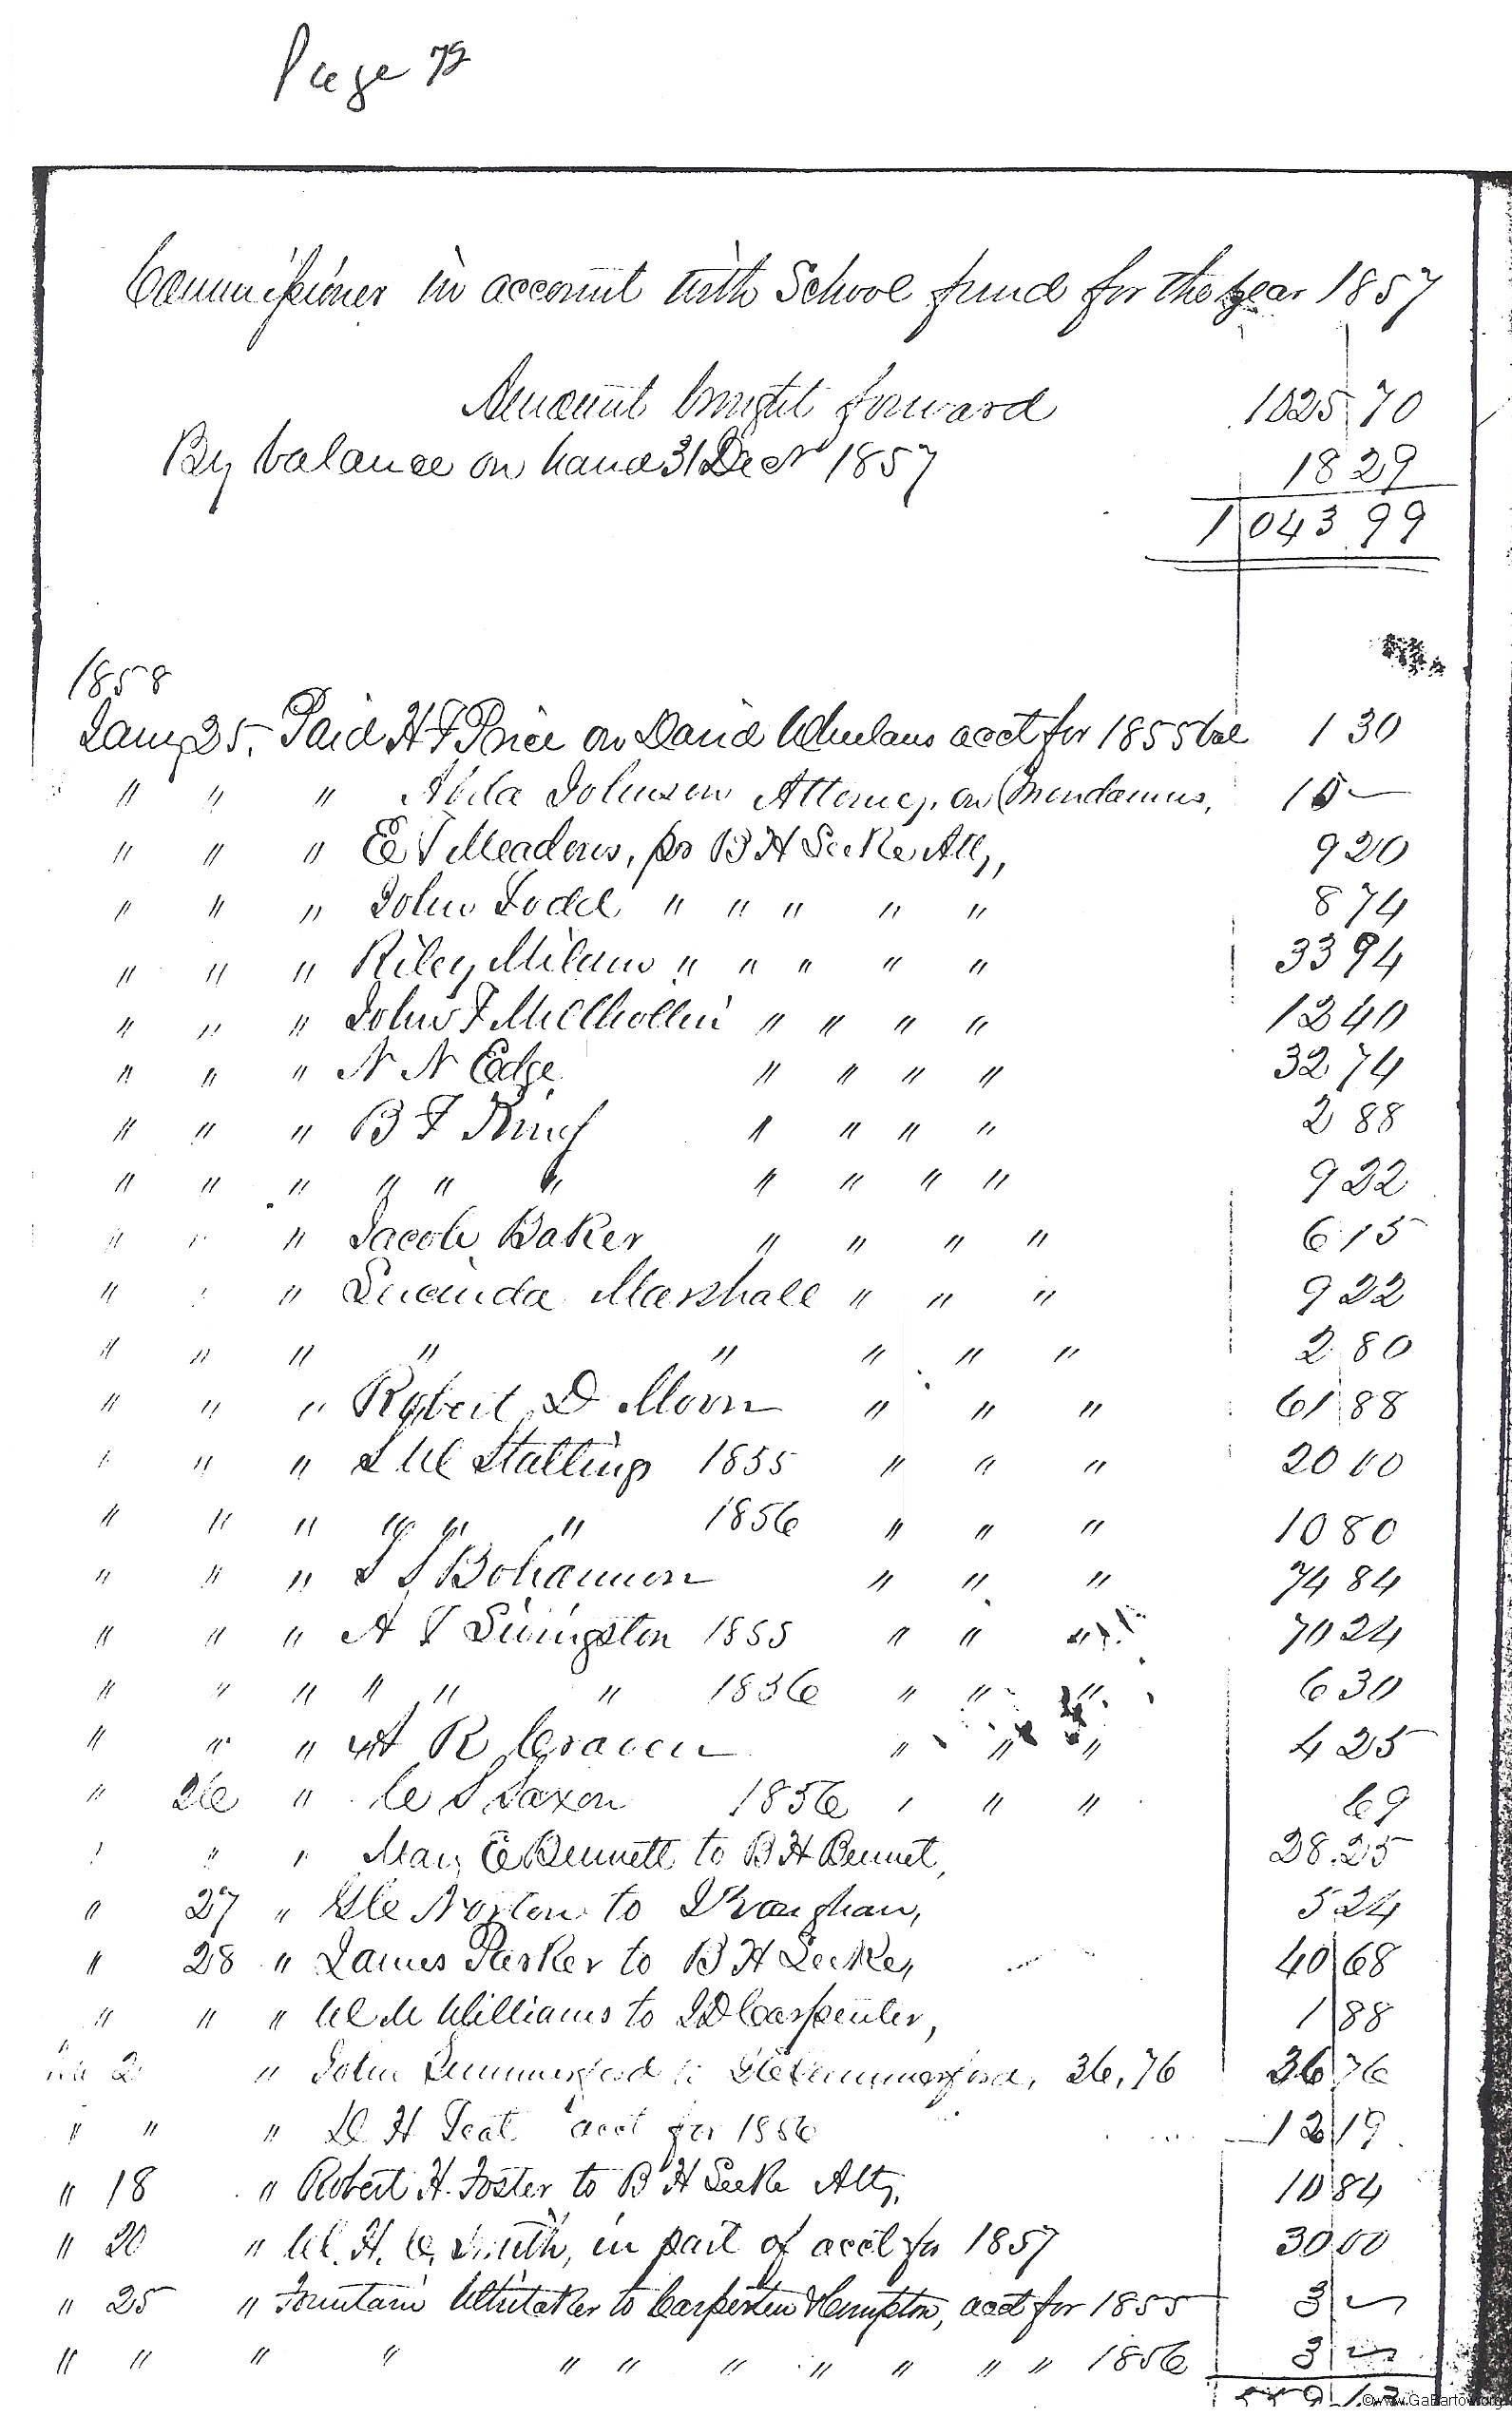 Page 72
Commissioner in account with School fund for the year 1857
Amount brought forward 1025 70
By balance on hand 31 Decr 1857 18 29
1 043 99
1858
Jany 25, Paid H F Price on David acct for 1855 bal 1 30
" " " Abda Johnson Attorney, on Mandamus, 15 —
" " " E T Meadows, pr B H Leeke Atty, 9 20
" " " John Dodd " " " " " 8 74
" " " Riley Milam " " " " " 33 94
" " " John F Millhollin " " " " 12 40
" " " N N Edge " " " " 32 74
" " " B F King " " " " 2 88
" " " " " " " " " " 9 22
" " " Jacob Baker " " " " 6 15
" " " Lucinda Marshall " " " 9 22
" " " " " " " " 2 80
" " " Robert D Moon " " " 61 88
" " " Stallings 1855 " " " 20 00
" " " " " " 1856 " " " 10 80
" " " Bohannon " " " 74 84
" " " A Livingston 1855 " " " 70 24
" " " " " " 1856 " " " 6 30
" " " A R Craven " " " 4 25
" 26 " C S Saxon 1856 " " " 69
" " " Mary E Bennett to B H Bennet, 28.25
" 27 " Norton to Vaughan, 5 24
" 28 " James Parker to B H Leeke, 40 68
" " " W M Williams to J D Carpenter, 1 88
2 " John Summerford to Summerford, 36,76 36 76
" " " H Teat acct for 1856 12 19
" 18 " Robert H. Foster to B H Leeke Atty, 10 84
" 20 " W. H. C. Smith, in part of acct for 1857 30 00
" 25 " Fountain Whitaker to Carpenter & Hampton, acct for 1855 3 —
" " " " " " " " " " " 1856 3 —
559 13
©www.GaBartow.org